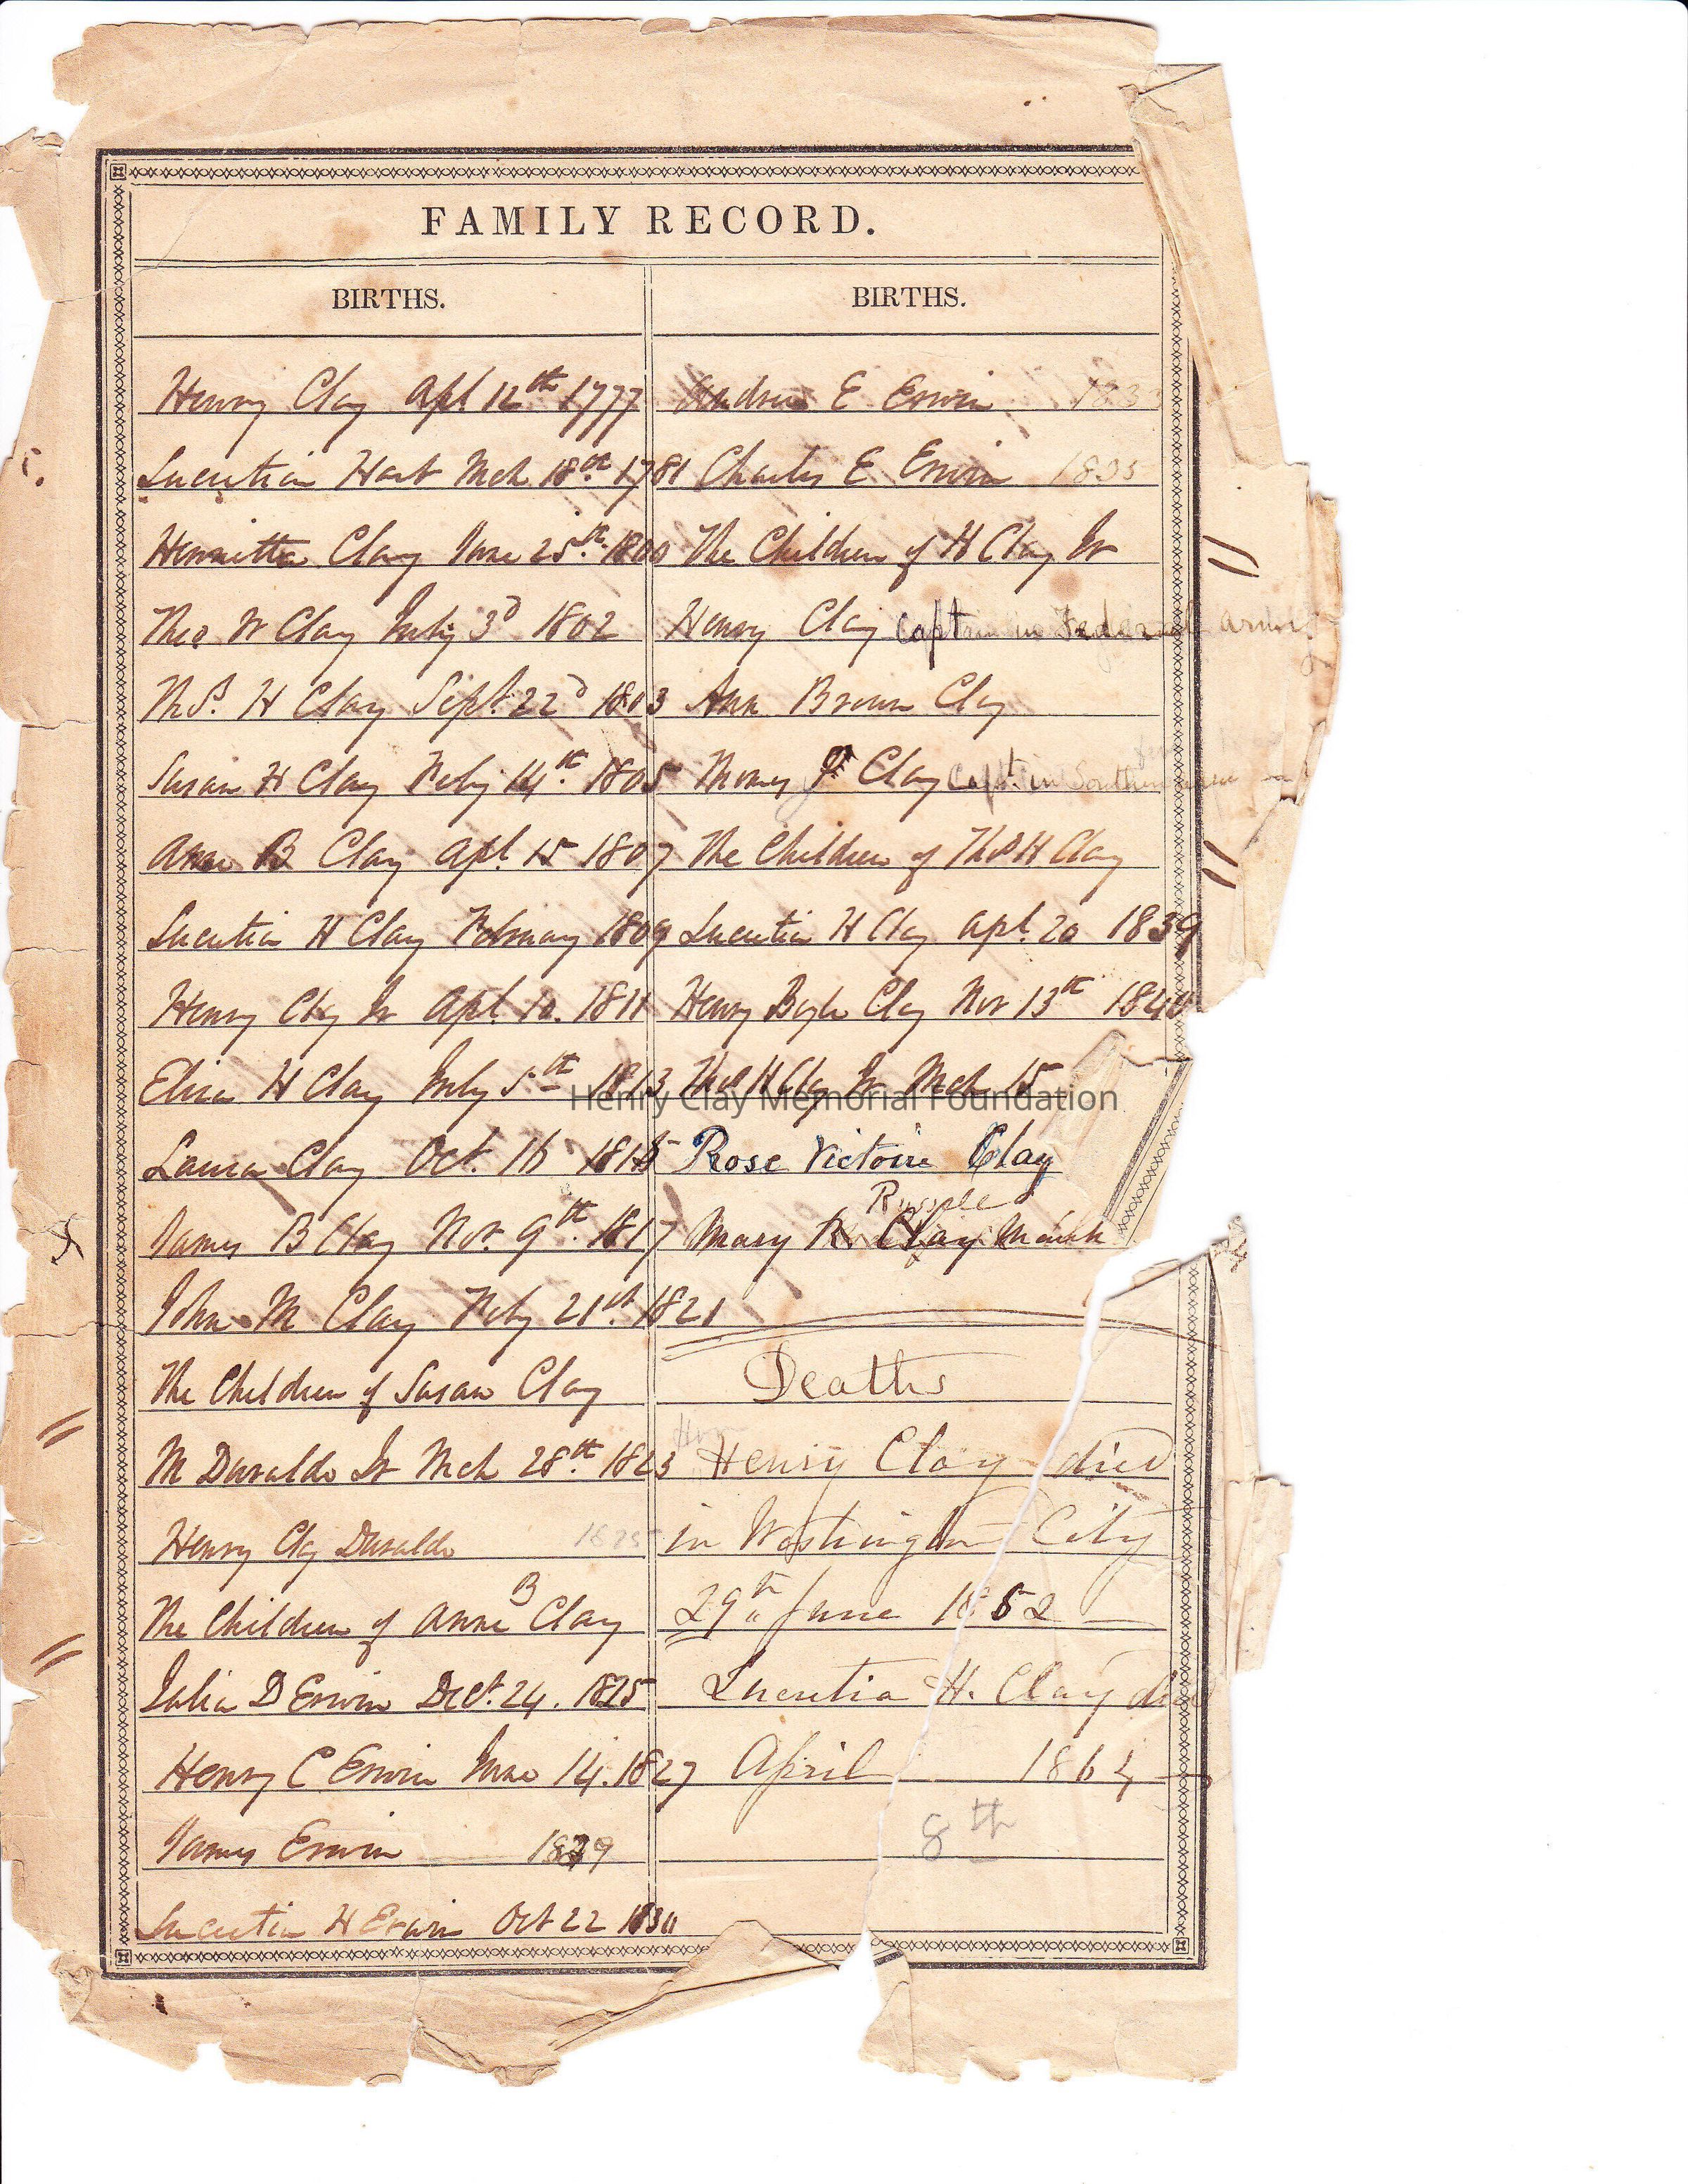 FAMILY RECORD.
BIRTHS.
Henry Clay Apl 12th 1777
Lucretia Hart Mch 18th 1781
Henrietta Clay June 25th 1800
Theo W Clay July 3d 1802
Ths. H Clay Sept. 22d 1803
Susan H Clay Feby 14th 1805
Anne B Clay Apl. 15 1807
Lucretia H Clay February 1809
Henry Clay Jr Apl. 10. 1811
Eliza H Clay July 5th 1813
Laura Clay Oct. 16 1815
James B Clay Nov. 9th. 1817
John M Clay Feby 21st. 1821
The Children of Susan Clay
M Duralde Jr Mch 28th. 1823
Henry Clay Duralde 1825
The Children of Anne B Clay
Julia D Erwin Dect. 24. 1825
Henry C Erwin June 14. 1827
James Erwin 1829
Lucretia H Erwin Oct 22 1830
BIRTHS.
Andrew E Erwin 1833
Charles E Erwin 1835
The Children of H Clay Jr
Henry Clay Captain in Federal army
Ann Brown Clay
Thomas J Clay Capt. in Southern
The Children of Ths H Clay
Lucretia H Clay Apl. 20 1839
Henry Boyle Clay Nov 13th 1840
Ths H Clay Jr Mch 15
Rose Victoire Clay
Russell
Mary R Clay March
Deaths
Henry Clay died
in Washington City
29th June 1852
Lucretia H. Clay died
April 1864
8th
Henry Clay Memorial Foundation